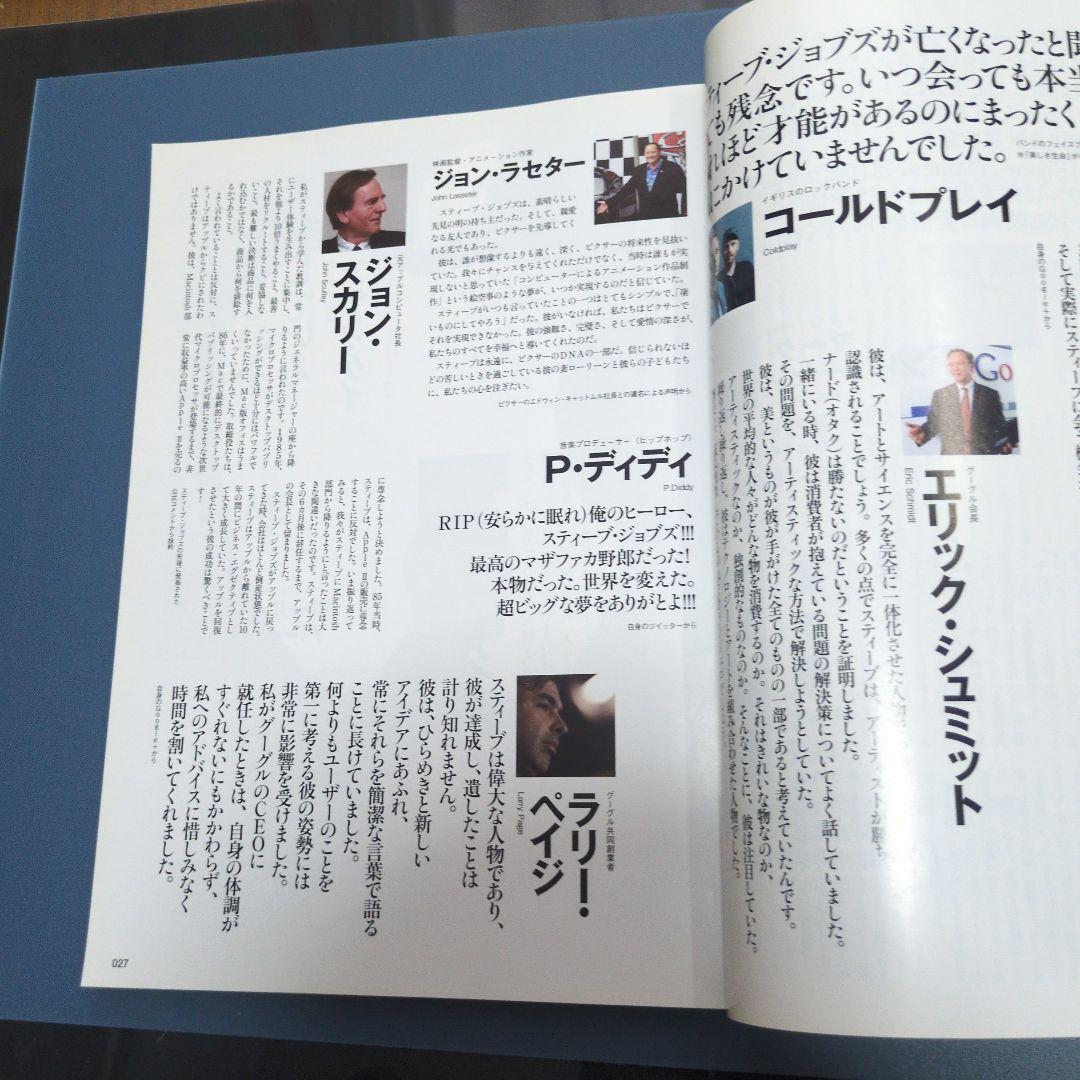 映画監督・アニメーション作家
ジョン・ラセター
John Lasseter
スティーブ・ジョブズは、素晴らしい
先見の明の持ち主だった。そして、親愛
なる友人であり、ピクサーを先導してく
れる光でもあった。
彼は、誰が想像するよりも遠く、深く、ピクサーの将来性を見抜い
ていた。我々にチャンスを与えてくれただけでなく、当時は誰もが実
現しないと思っていた「コンピューターによるアニメーション作品制
作」という絵空事のような夢が、いつか実現するのだと信じていた。
スティーブがいつも言っていたことの一つはとてもシンプルで、「凄
いものにしてやろう」だった。彼がいなければ、私たちはピクサーで
それを実現できなかった。彼の強靱さ、完璧さ、そして愛情の深さが、
私たちのすべてを幸福へと導いてくれたのだ。
スティーブは永遠に、ピクサーのDNAの一部だ。信じられないほ
どの苦しいときを過ごしている彼の妻ローリーンと彼らの子どもたち
に、私たちの心を注ぎたい。
ピクサーのエドウィン・キャットムル社長との連名による声明から
元アップルコンピュータ社長
ジョン・
スカリー
John Sculley
私がスティーブから学んだ教訓は、常
にユーザー体験を生み出すことに集中し、
それを他より10倍うまくやること。最善
の人材をリクルートすること。妥協しな
いこと。最も難しい決断は商品に何を入
れ込むかではなく、商品から何を排除す
るかであること。
よく言われていることとは反対に、ス
ティーブはアップルからクビにされたわ
けではありません。彼は、Macintosh部
門のジェネラルマネージャーの座から降
りるように言われたのです。1985年、
マイクロプロセッサがデスクトップパブリ
ッシングができるほど十分にはパワフルで
なかったために、Mac版オフィスはうま
くいっていませんでした。取締役たちは、
86年に、Macで最終的にデスクトップ
パブリッシングが可能になるような次世
代マイクロプロセッサが登場するまで、非
常に収益率の高いApple IIを売るの
に専念しようと決めました。85年当時、
スティーブは、Apple IIの販売に専念
することに反対でした。いま振り返って
みると、我々がスティーブにMacintosh
部門から降りるようにと言ったことは大
きな間違いだったのです。スティーブは、
その6カ月後に辞任するまで、アップル
の会長として留まりました。
スティーブ・ジョブズがアップルに戻っ
てきた時、会社はほとんど倒産状態でした。
スティーブはアップルから離れていた10
年の間にビジネス・エグゼクティブとし
て大きく成長していた。アップルを回復
させたという彼の成功は驚くべきことで
す!
スティーブ・ジョブズの死後に発表された
公式コメントから抜粋
音楽プロデューサー(ヒップホップ)
P・ディディ
P.Diddy
RIP(安らかに眠れ)俺のヒーロー、
スティーブ・ジョブズ!!!
最高のマザファカ野郎だった!
本物だった。世界を変えた。
超ビッグな夢をありがとよ!!!
自身のツイッターから
グーグル共同創業者
ラリー・
ペイジ
Larry Page
スティーブは偉大な人物であり、
彼が達成し、遺したことは
計り知れません。
彼は、ひらめきと新しい
アイデアにあふれ、
常にそれらを簡潔な言葉で語る
ことに長けていました。
何よりもユーザーのことを
第一に考える彼の姿勢には
非常に影響を受けました。
私がグーグルのCEOに
就任したときは、自身の体調が
すぐれないにもかかわらず、
私へのアドバイスに惜しみなく
時間を割いてくれました。
自身のGoogle+から
027
ティーブ・ジョブズが亡くなったと聞
ても残念です。いつ会っても本当
れほど才能があるのにまったく
にかけていませんでした。
バンドのフェイスブ
イギリスのロックバンド
コールドプレイ
Coldplay
自身のGoogle+から
Go
グーグル会長
エリック・シュミット
Eric Schmidt
彼は、アートとサイエンスを完全に一体化させた人物
認識されることでしょう。多くの点でスティーブは、アーティストが勝ち、
ナード(オタク)は勝たないのだということを証明しました。
一緒にいる時、彼は消費者が抱えている問題の解決策についてよく話していました。
その問題を、アーティスティックな方法で解決しようとしていた。
彼は、美というものが彼が手がけた全てのものの一部であると考えていたんです。
世界の平均的な人々がどんな物を消費するのか。それはきれいな物なのか、
アーティスティックなのか、独創的なものなのか。そんなことに、彼は注目していた。